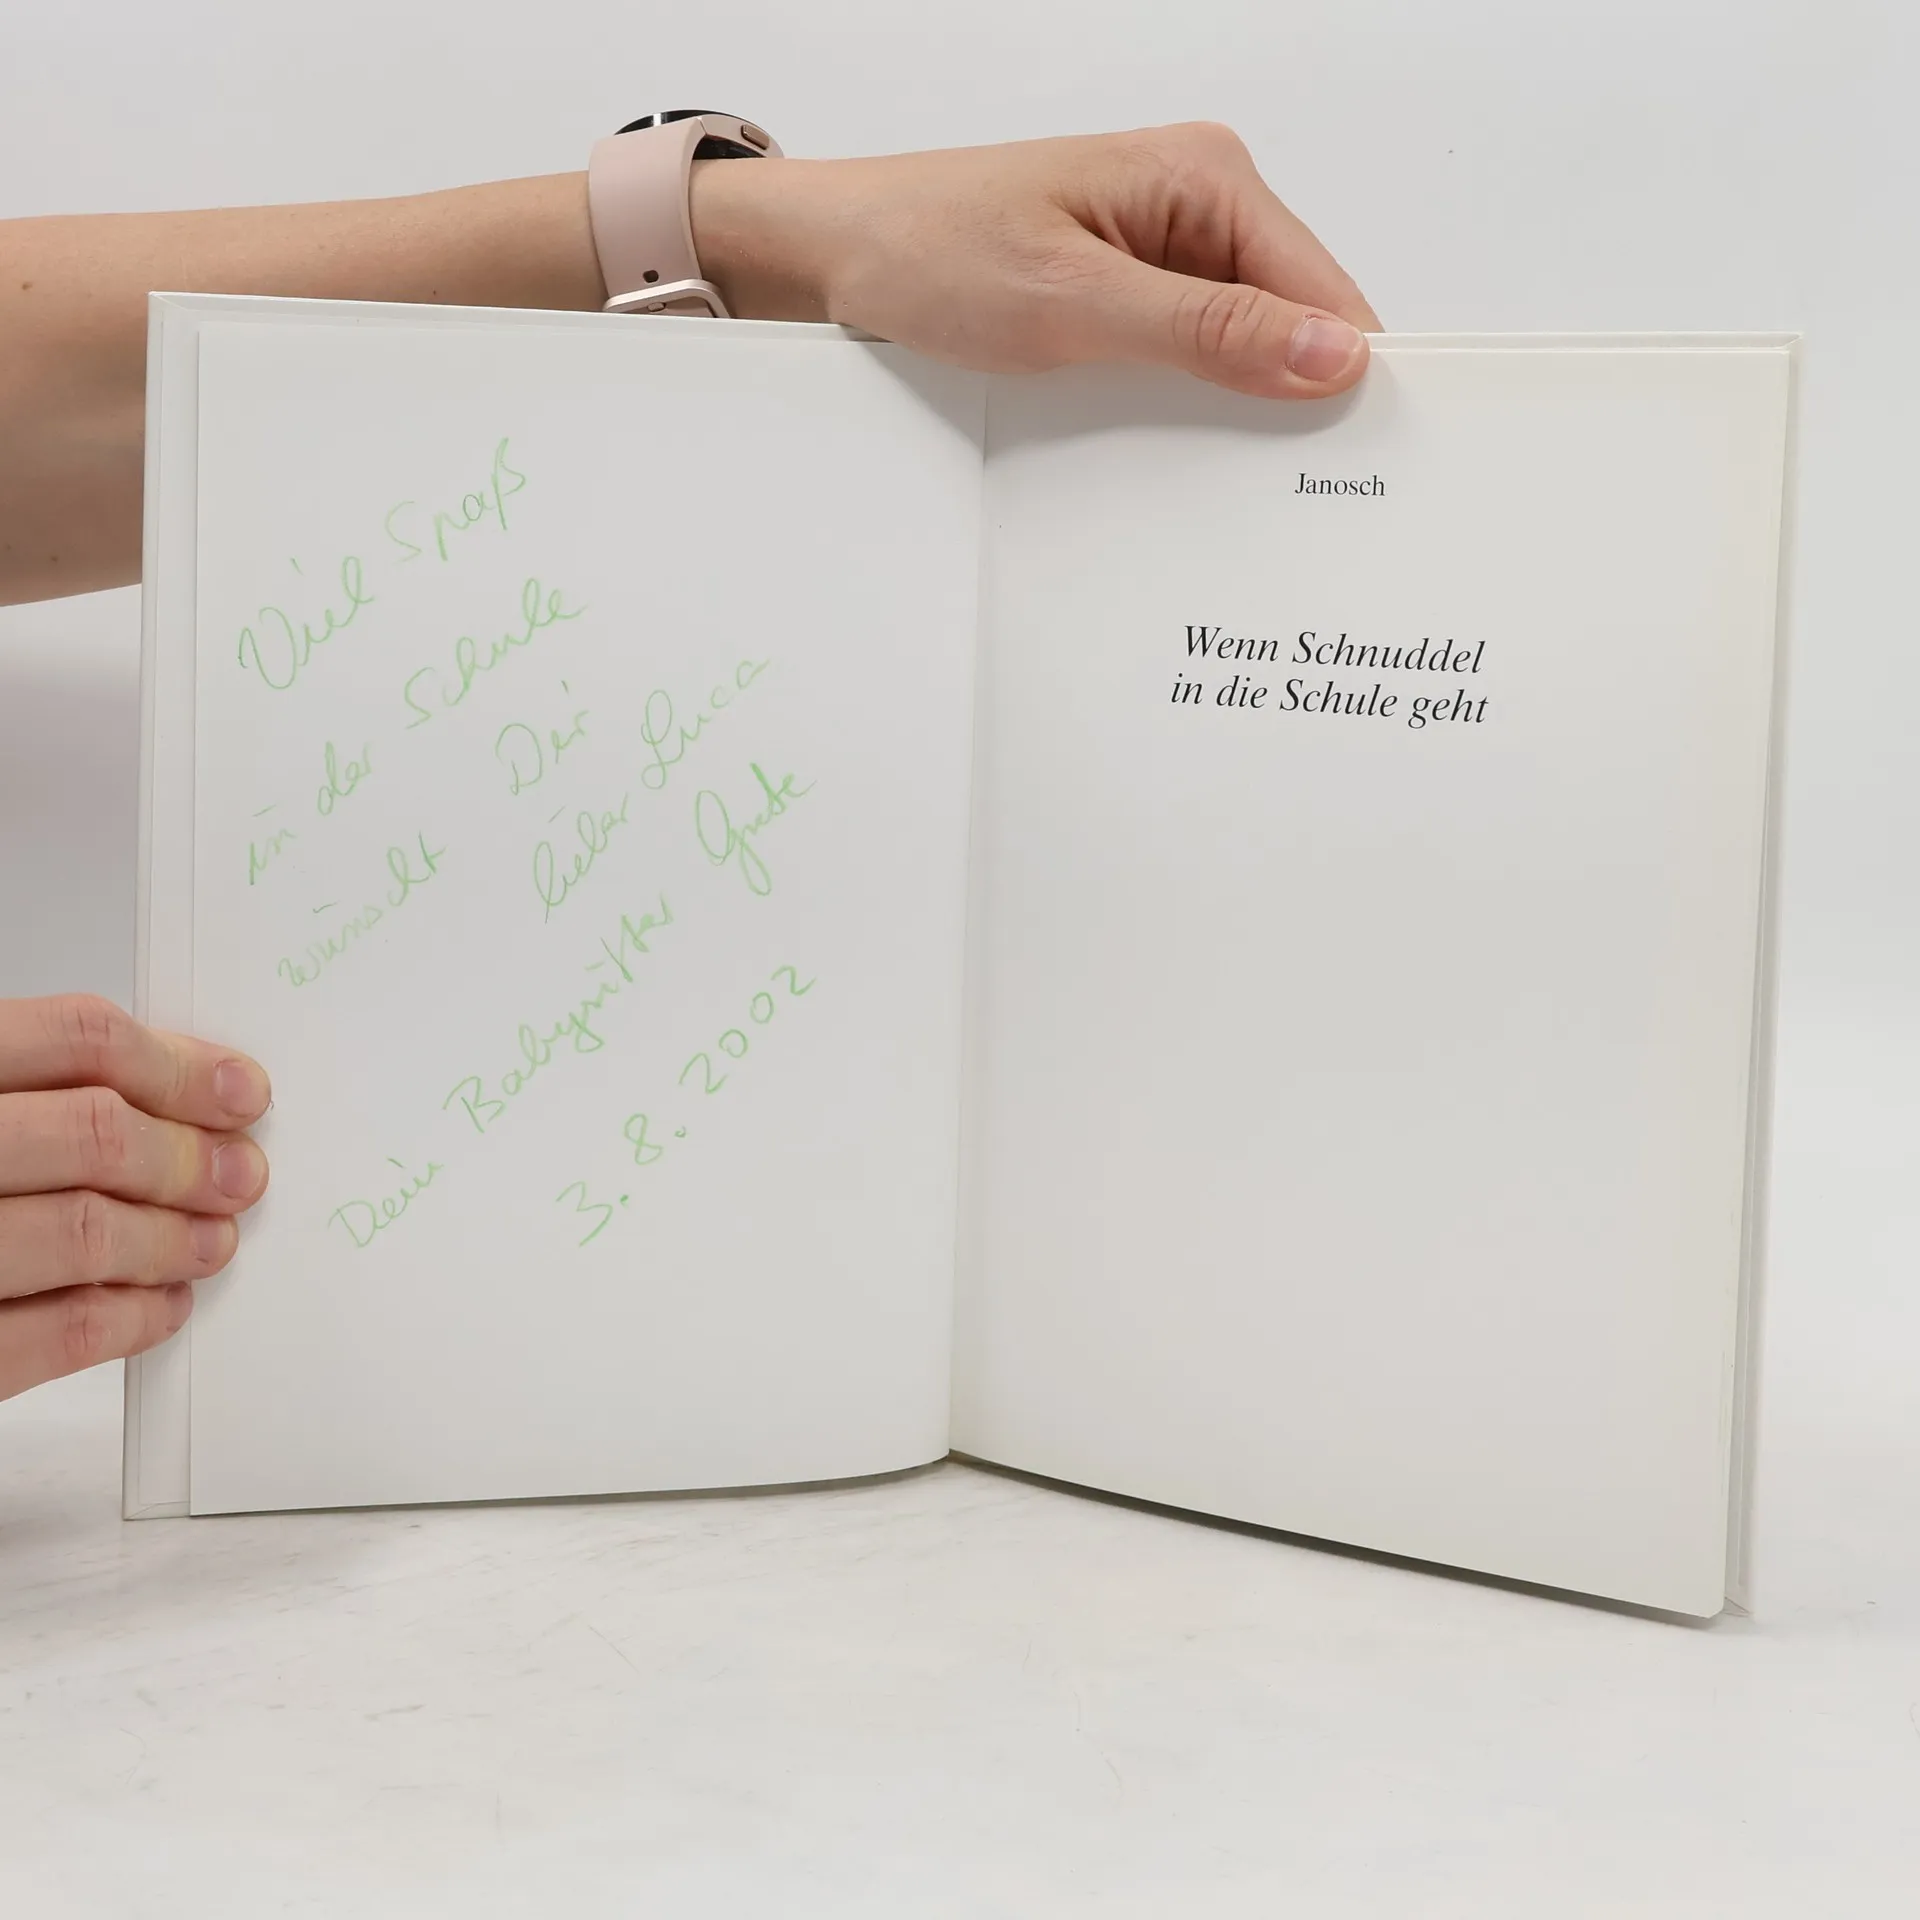 Viel Spaß
in der Schule
wünscht Dir
lieber Luca
Dein Babysitter Grete
3. 8. 2002
Janosch
Wenn Schnuddel
in die Schule geht